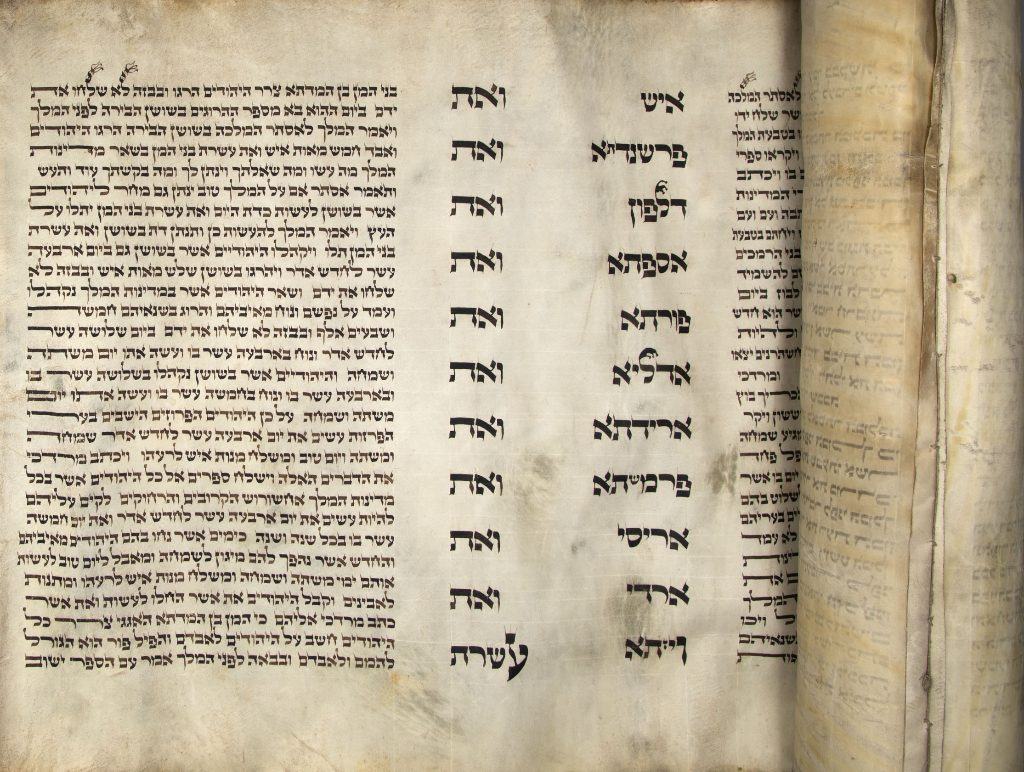 לאסתר המלכה
שר שלח ידו
בטבעת המלך
ויקראו ספרי
בו ויכתב
המדינות
ועם ועם
ויחתם בטבעת
בני הרמכים
להשמיד
לבוז ביום
שר הוא חדש
ולהיות
יצאו
ומרדכי
תכריך בוץ
ששון ויקר
מגיע שמחה
פחד
בו אשר
שלוט בהם
בעריהם
לא עמד
את
המלך
ויכו
בשנאיהם
איש ואת
פרשנדתא ואת
דלפון ואת
אספתא ואת
פורתא ואת
אדליא ואת
ארידתא ואת
פרמשתא ואת
אריסי ואת
ארדי ואת
ויזתא עשרת
בני המן בן המדתא צרר היהודים הרגו ובבזה לא שלחו את
ידם ביום ההוא בא מספר ההרוגים בשושן הבירה לפני המלך
ויאמר המלך לאסתר המלכה בשושן הבירה הרגו היהודים
ואבד חמש מאות איש ואת עשרת בני המן בשאר מדינות
המלך מה עשו ומה שאלתך וינתן לך ומה בקשתך עוד ותעש
ותאמר אסתר אם על המלך טוב ינתן גם מחר ליהודים
אשר בשושן לעשות כדת היום ואת עשרת בני המן יתלו על
העץ ויאמר המלך להעשות כן ותנתן דת בשושן ואת עשרת
בני המן תלו ויקהלו היהודיים אשר בשושן גם ביום ארבעה
עשר לחדש אדר ויהרגו בשושן שלש מאות איש ובבזה לא
שלחו את ידם ושאר היהודים אשר במדינות המלך נקהלו
ועמד על נפשם ונוח מאיביהם והרג בשנאיהם חמשה
ושבעים אלף ובבזה לא שלחו את ידם ביום שלושה עשר
לחדש אדר ונוח בארבעה עשר בו ועשה אתו יום משתה
ושמחה והיהודיים אשר בשושן נקהלו בשלושה עשר בו
ובארבעה עשר בו ונוח בחמשה עשר בו ועשה אתו יום
משתה ושמחה על כן היהודים הפרוזים הישבים בערי
הפרזות עשים את יום ארבעה עשר לחדש אדר שמחה
ומשתה ויום טוב ומשלח מנות איש לרעהו ויכתב מרדכי
את הדברים האלה וישלח ספרים אל כל היהודים אשר בכל
מדינות המלך אחשורוש הקרובים והרחוקים לקים עליהם
להיות עשים את יום ארבעה עשר לחדש אדר ואת יום חמשה
עשר בו בכל שנה ושנה כימים אשר נחו בהם היהודים מאיביהם
והחדש אשר נהפך להם מיגון לשמחה ומאבל ליום טוב לעשות
אותם ימי משתה ושמחה ומשלח מנות איש לרעהו ומתנות
לאבינים וקבל היהודים את אשר החלו לעשות ואת אשר
כתב מרדכי אליהם כי המן בן המדתא האגגי צרר כל
היהודים חשב על היהודים לאבדם והפיל פור הוא הגורל
להמם ולאבדם ובבאה לפני המלך אמר עם הספר ישוב